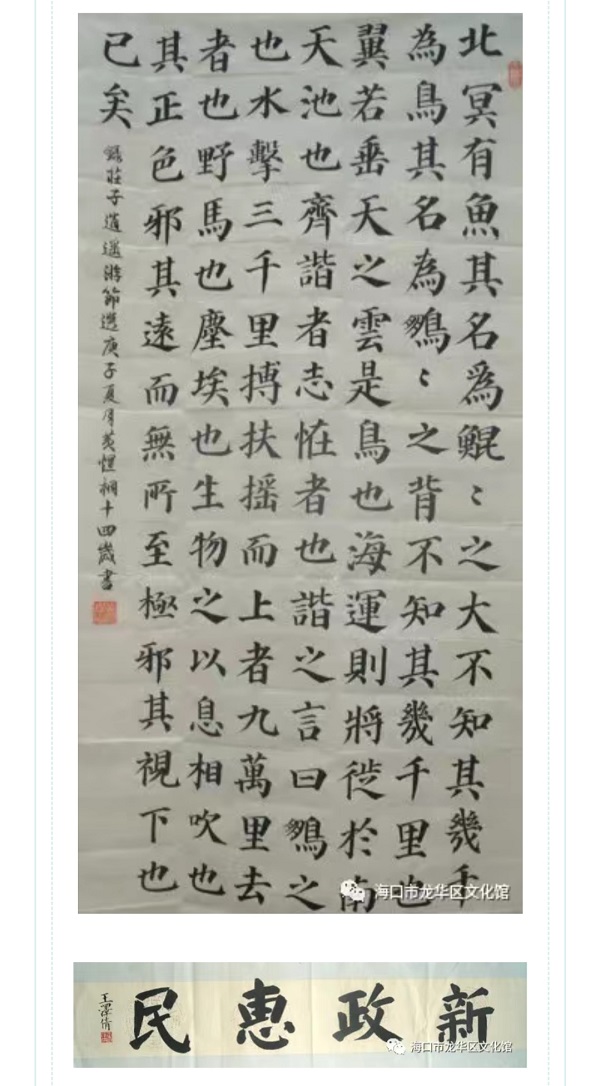 北冥有魚其名爲鯤〻之大不知其幾千
為鳥其名為鵬〻之背不知其幾千里也
翼若垂天之雲是鳥也海運則將徙於南
天池也齊諧者志恠者也諧之言曰鵬之
也水擊三千里搏扶摇而上者九萬里去
者也野馬也塵埃也生物之以息相吹也
其正色邪其遠而無所至極邪其視下也
已矣
錄莊子逍遥游節選庚子夏月十四歲書
海口市龙华区文化馆
新政惠民
海口市龙华区文化馆